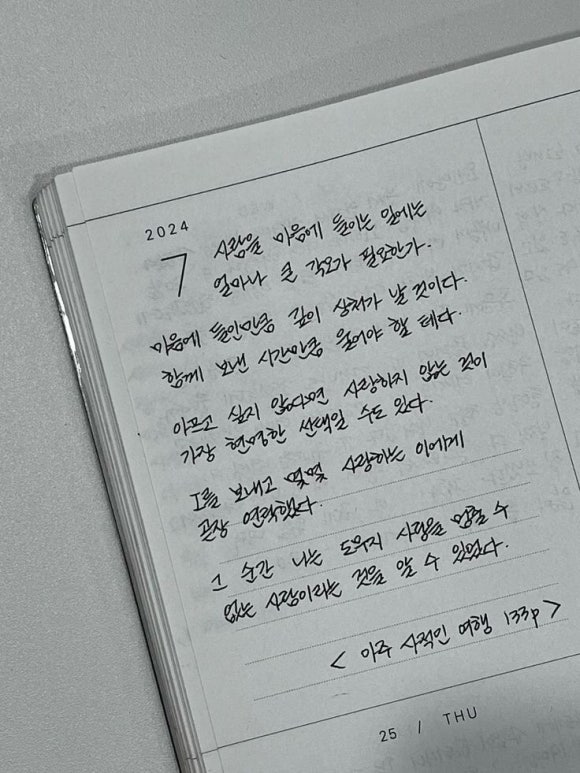 2024
7
사람을 마음에 들이는 일에는
얼마나 큰 각오가 필요한가.
마음에 들인만큼 깊이 상처가 날 것이다.
함께 보낸 시간만큼 울어야 할 테다.
아프고 싶지 않다면 사랑하지 않는 것이
가장 현명한 선택일 수도 있다.
I를 보내고 몇몇 사랑하는 이에게
곧장 연락했다.
그 순간 나는 도무지 사랑을 멈출 수
없는 사람이라는 것을 알 수 있었다.
< 아주 사적인 여행 133p >
25 / THU